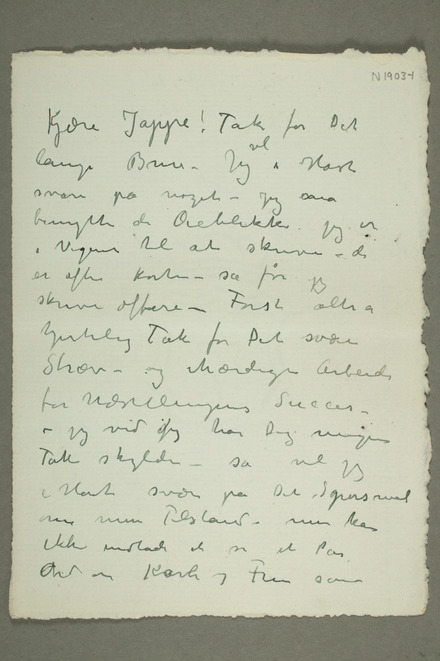 N 1903-1
Kjære Jappe! Tak for Det
lange Brev – Jeg vil i Hast
svare på noget – Jeg må
benytte de Øieblikke jeg er
i Vigeur til at skrive – de
er ofte korte – så får jeg
skrive oftere – Først altså
hjertelig Tak for Det svære
Stræv – og ihærdige Arbeide
for Udstillingens Succes –
– jeg ved jeg har Dig megen
Tak skyldig – så vil jeg
i Hast svare på Dit Spørsmål
om min Tilstand – men kan
ikke indlade et par
Ord om og Fru som